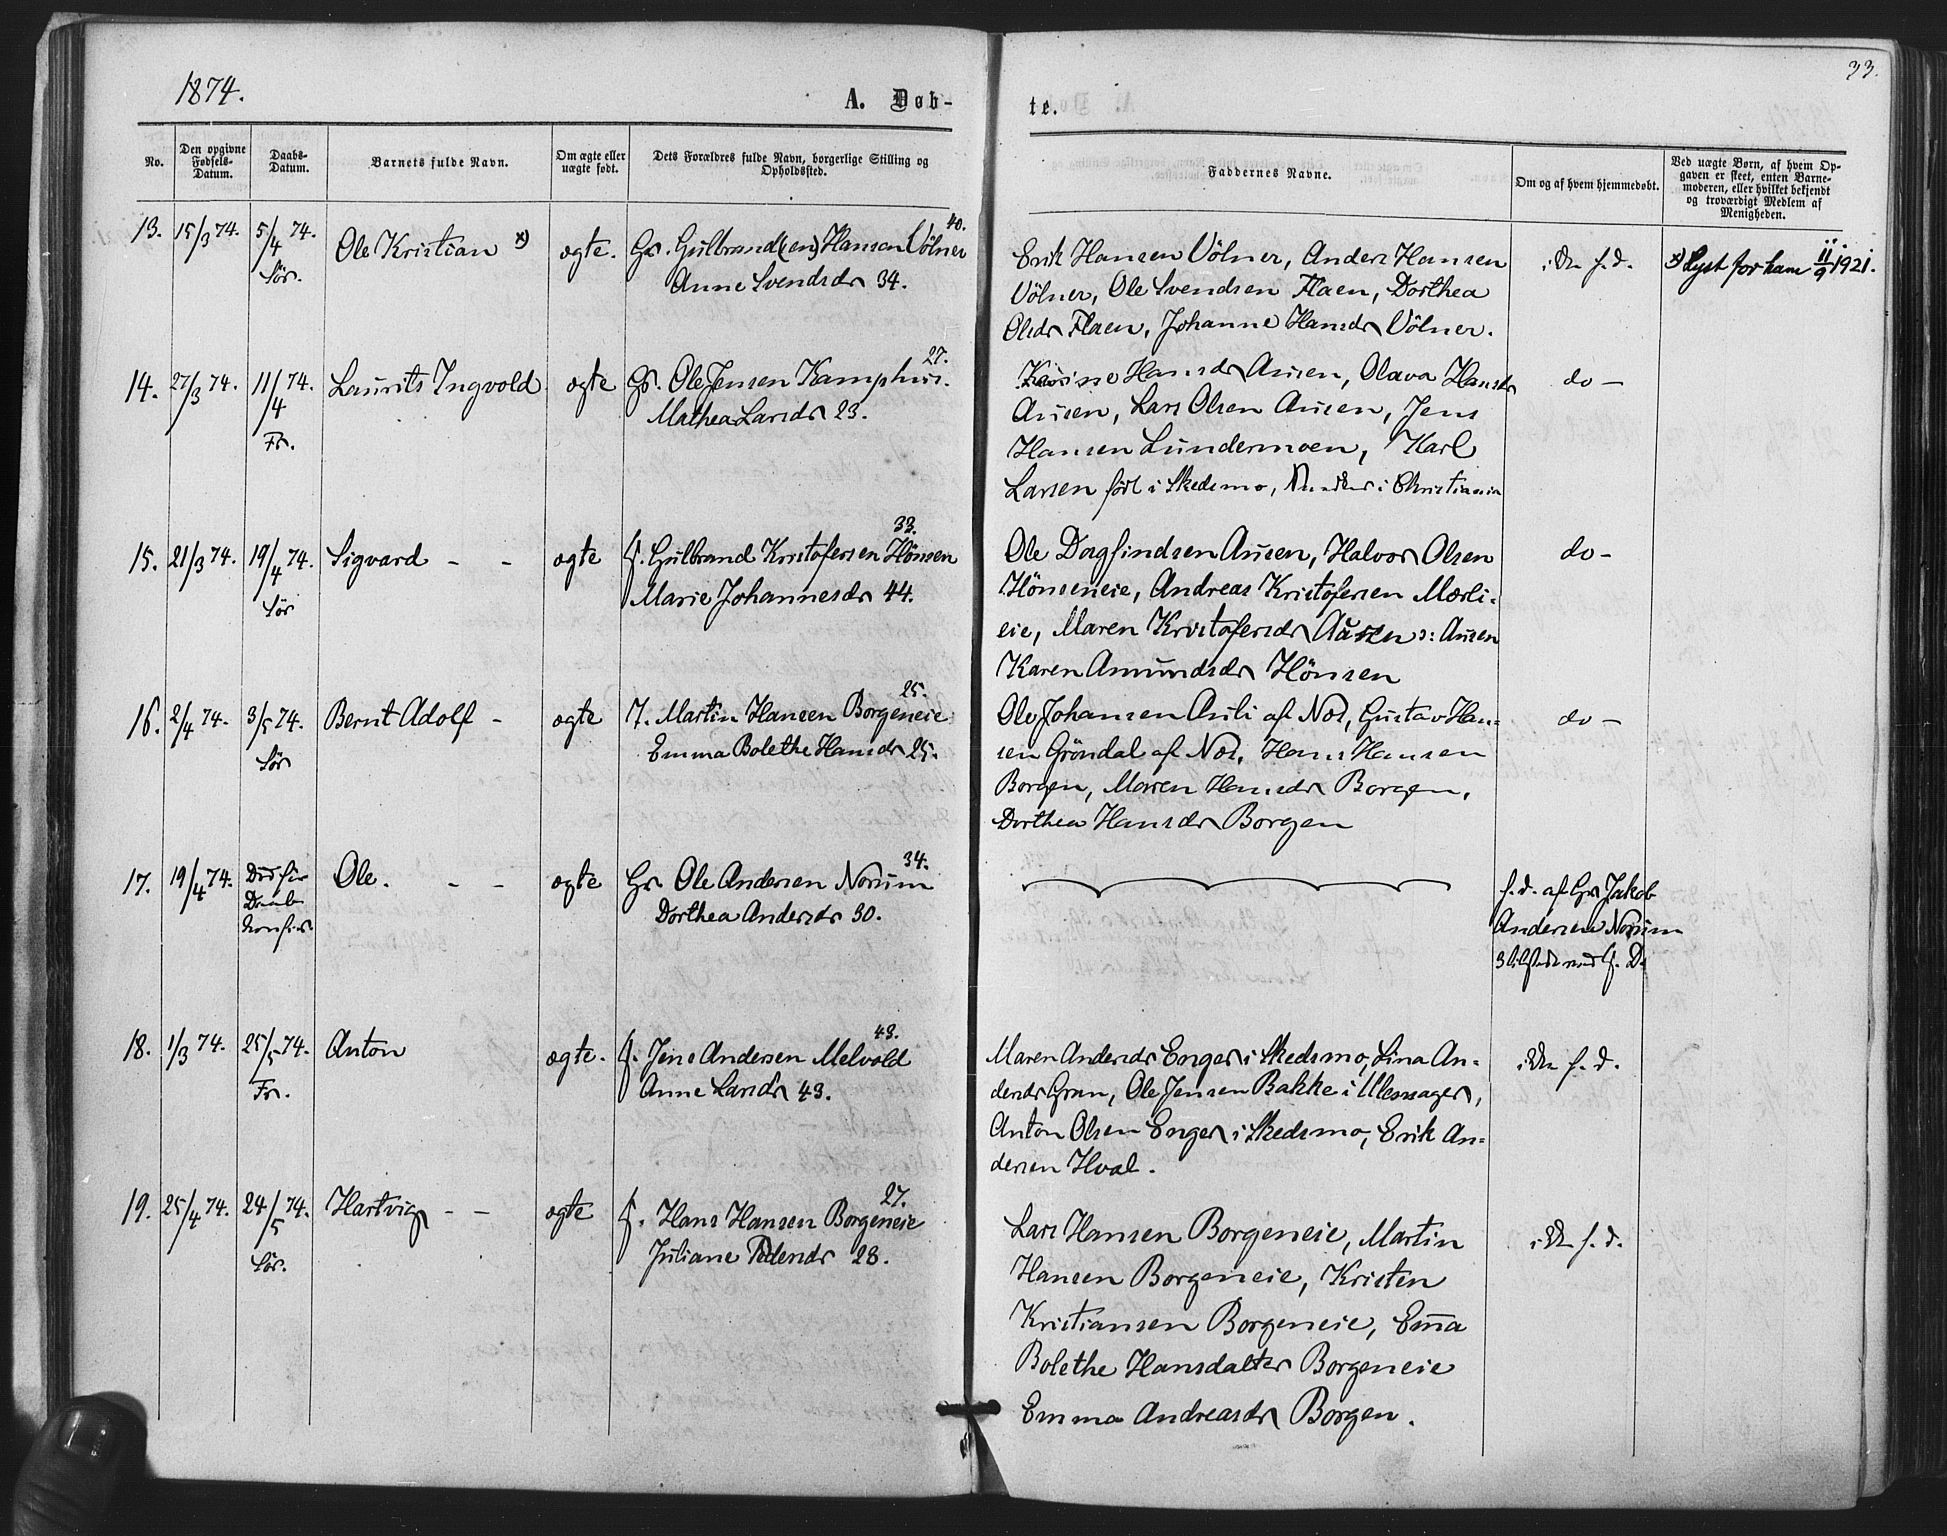 1874.
A. Døb-
te.
33.
No.
Den opgivne Fødsels-Datum.
Daabs-Datum.
Barnets fulde Navn.
Om ægte eller uægte født.
Dets Forældres fulde Navn, borgerlige Stilling og Opholdssted.
Faddernes Navne.
Om og af hvem hjemmedøbt.
Ved uægte Børn, af hvem Op-
gaven er skeet, enten Barne-
moderen, eller hvilket bekjendt
og troværdigt Medlem af
Menigheden.
13. 15/3 74. 5/4 74. Sør. Ole Kristian x) ægte. Gr. Gulbrand(en) Hansen Völner 40.
Anne Svendsdr 34.
Erik Hansen Völner, Anders Hansen
Völner, Ole Svendsen Flaen, Dorthea
Olsdr Flaen, Johanne Hansdr Völner.
i. d.
x) Lyst for ham 11/9 1921.
14. 27/3 74. 11/4 74. Fr. Laurits Ingvold ægte Gr. Ole Jensen Kamphus. 27.
Mathea Larsdr 23.
Hansdr Ausen, Olava Hansdr
Ausen, Lars Olsen Ausen, Jens
Hansen Lundermoen, Karl
Larsen født i Skedsmo, i Christiania
do —
15. 21/3 74. 19/4 74. Sør Sigvard - - ægte f. Gulbrand Kristofersen Hönsen 33.
Marie Johannesdr 44.
Ole Dagfindsen Ausen, Halvor Olsen
Hönseneie, Andreas Kristofersen Mærli-
eie, Maren Kristofersdr Aasen ɔ: Ausen
Karen Amundsdr Hönsen
do -
16. 2/4 74. 3/5 74. Sør Bernt Adolf - ægte I. Martin Hansen Borgeneie 25.
Emma Bolethe Hansdr 25.
Ole Johansen Auli af Næs, Gustav Han-
sen Gröndal af Næs, Hans Hansen
Borgen, Maren Hansdr Borgen,
Dorthea Hansdr Borgen
do —
17. 19/4 74. Død før Daab Ole. - - ægte Gr Ole Andersen Norum 34.
Dorthea Andersdr 30.
h. d. af Gr Jakob
Andersen Norum
18. 1/3 74. 25/5 74. Fr. Anton ægte. f. Jens Andersen Melvold 43.
Anne Larsdr 43.
Maren Andersdr Enger i Skedsmo, Lina An-
dersdr Gran, Ole Jensen Bakke i Ulensager,
Anton Olsen Enger i Skedsmo, Erik An-
dersen Hval.
h. d.
19. 25/4 74. 24/5 74. Sør. Hartvig - - ægte f. Hans Hansen Borgeneie 27.
Juliane Pedersdr 28.
Lars Hansen Borgeneie, Martin
Hansen Borgeneie, Kristen
Kristiansen Borgeneie, Em̄a
Bolethe Hansdatter Borgeneie
Emma Andreasdr Borgen.
h. d.